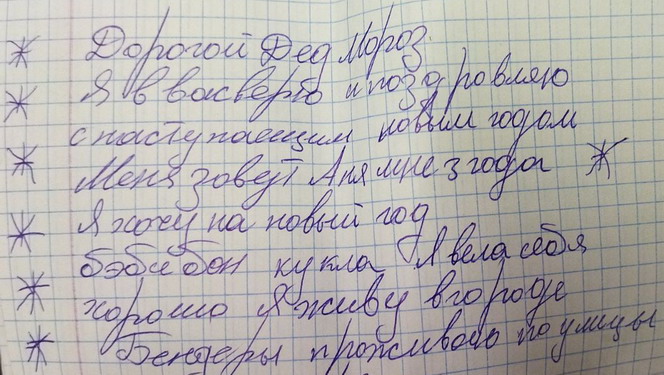 Дорогой Дед Мороз
Я в вас верю и поздровляю
с наступаещим новым годом
Меня зовут Аня мне 3 года
Я хочу на новый год
бэби бон кукла Я вела себя
хорошо Я живу в городе
Бендеры проживаю по улицы